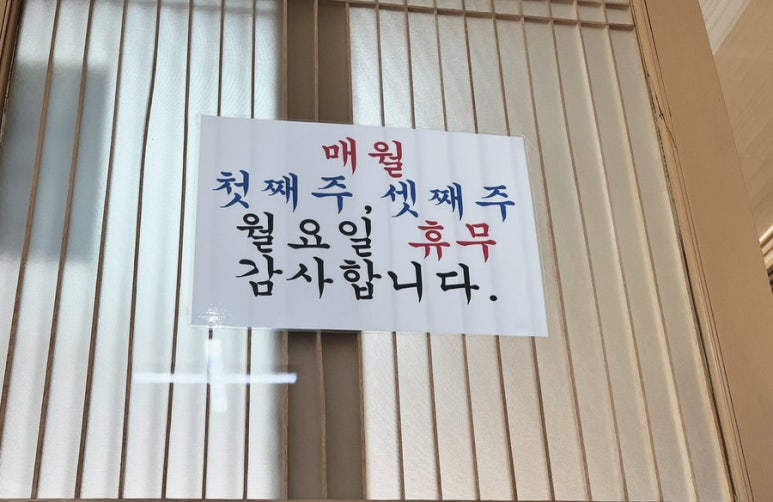 매월
첫째 주, 셋째 주
월요일 휴무
감사합니다.